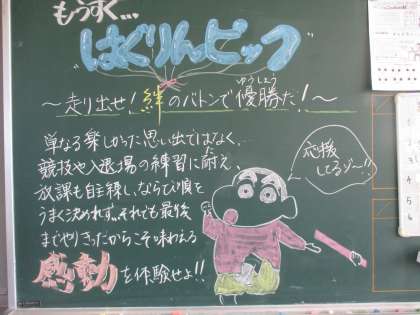 もうすぐ…
"はぐりんピック"
～走り出せ！絆のバトンで優勝だ！～
ゆうしょう
単なる楽しかった思い出ではなく、
競技や入退場の練習に耐え、
放課も自主練し、ならび順を
うまく決めれず、それでも最後
までやりきったからこそ味わえる
感動を体験せよ!!
応援
してるゾ～!!